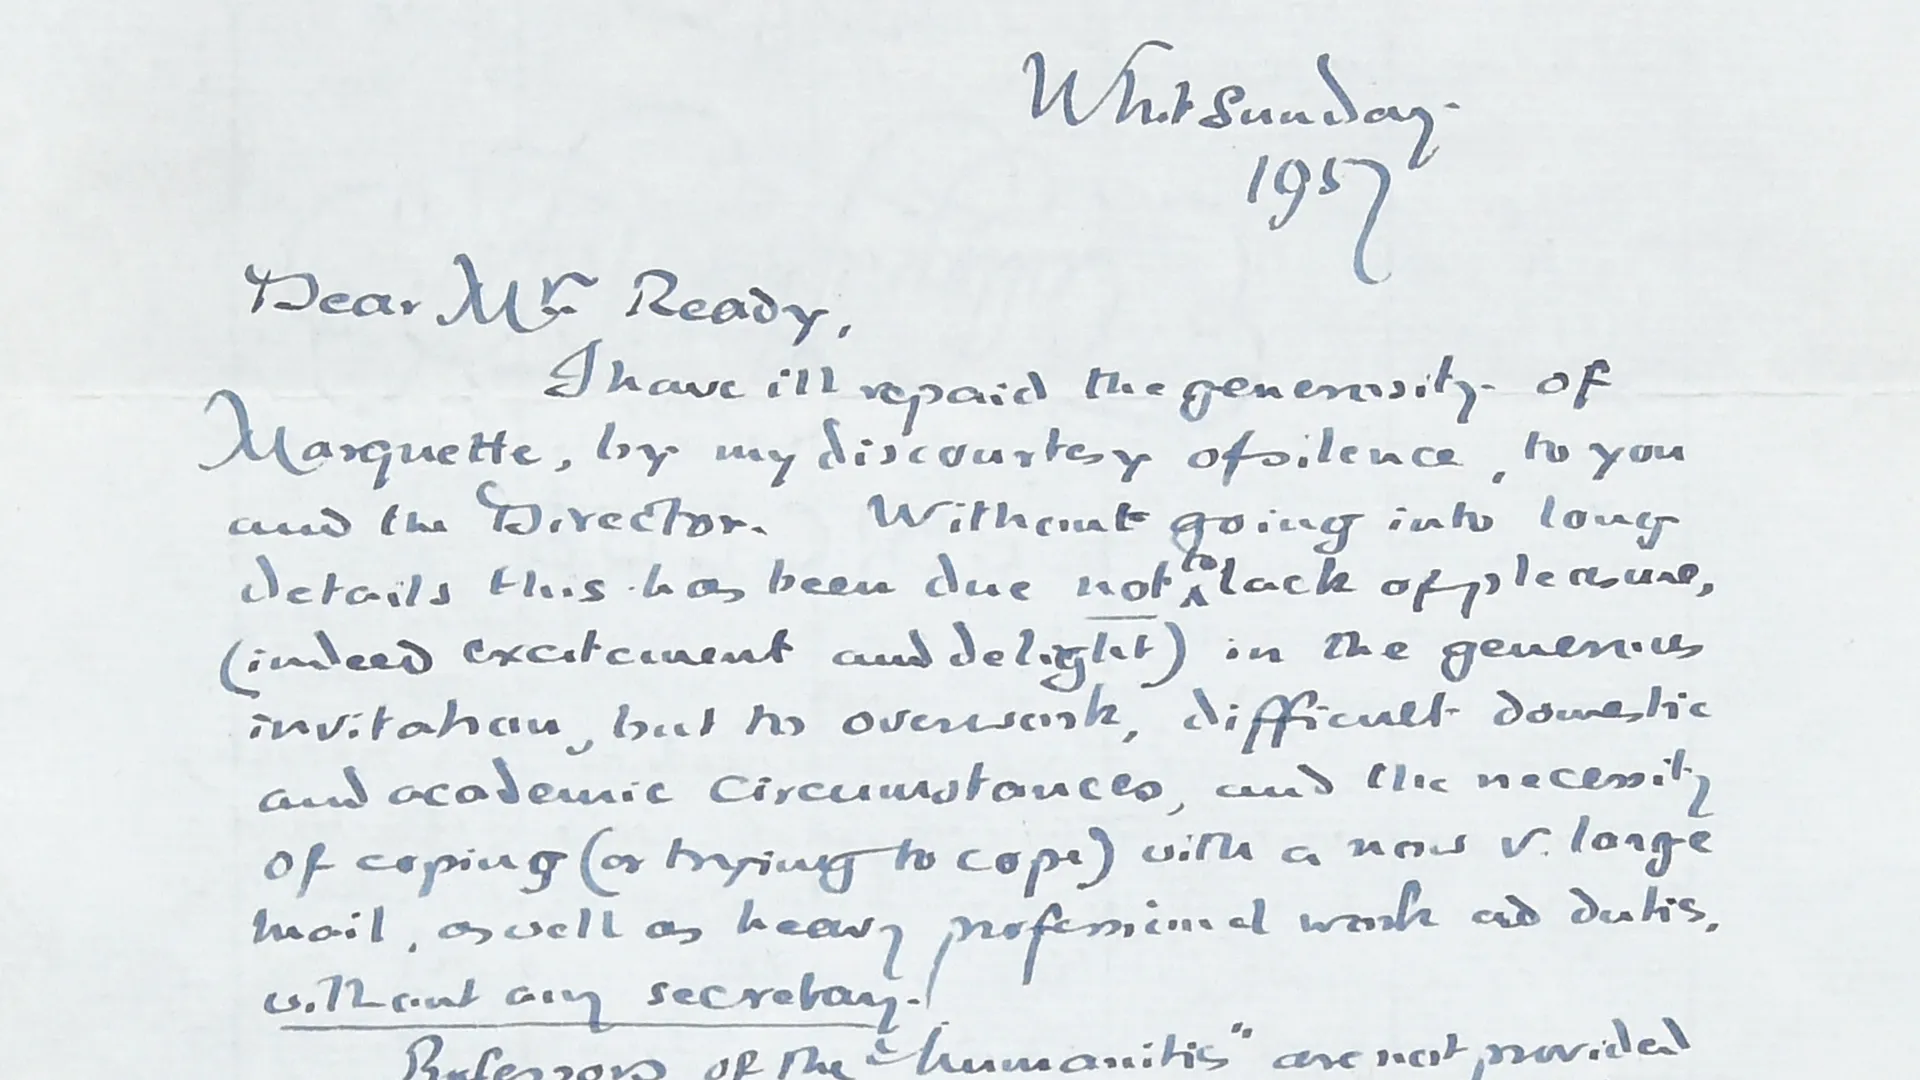 Whitsunday.
1957
Dear Mr Ready,
I have ill repaid the generosity of
Marquette, by my discourtesy of silence, to you
and the Director. Without going into long
details this has been due not to lack of pleasure,
(indeed excitement and delight) in the generous
invitation, but to overwork, difficult domestic
and academic circumstances, and the necessity
of coping (or trying to cope) with a now v. large
mail, as well as heavy professional work and duties,
without any secretary.
Professors of the "humanities" are not provided